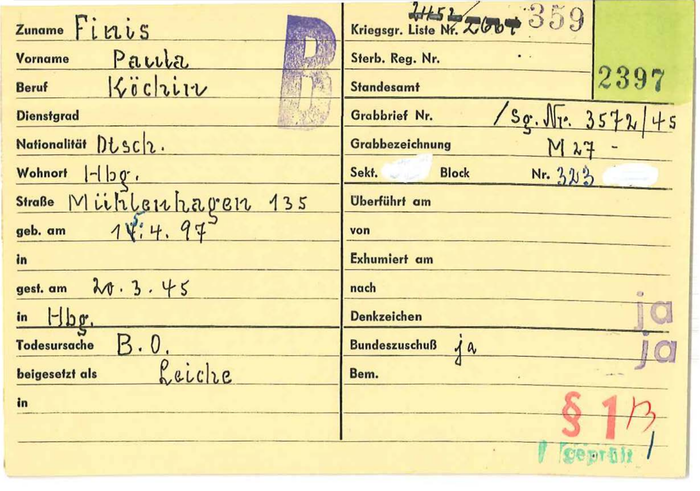 Zuname Finis
Vorname Paula
Beruf Köchin
Dienstgrad
Nationalität Dtsch.
Wohnort Hbg.
Straße Mühlenhagen 135
geb. am 15.4.97
in
gest. am 20.3.45
in Hbg.
Todesursache B.O.
beigesetzt als Leiche
in
B
Kriegsgr. Liste Nr. 359
Sterb. Reg. Nr.
Standesamt
2397
Grabbrief Nr. /Sg. Nr. 3572/45
Grabbezeichnung M 27 -
Sekt. Block Nr. 323
Überführt am
von
Exhumiert am
nach
Denkzeichen ja
Bundeszuschuß ja ja
Bem.
§ 1 B
geprüft